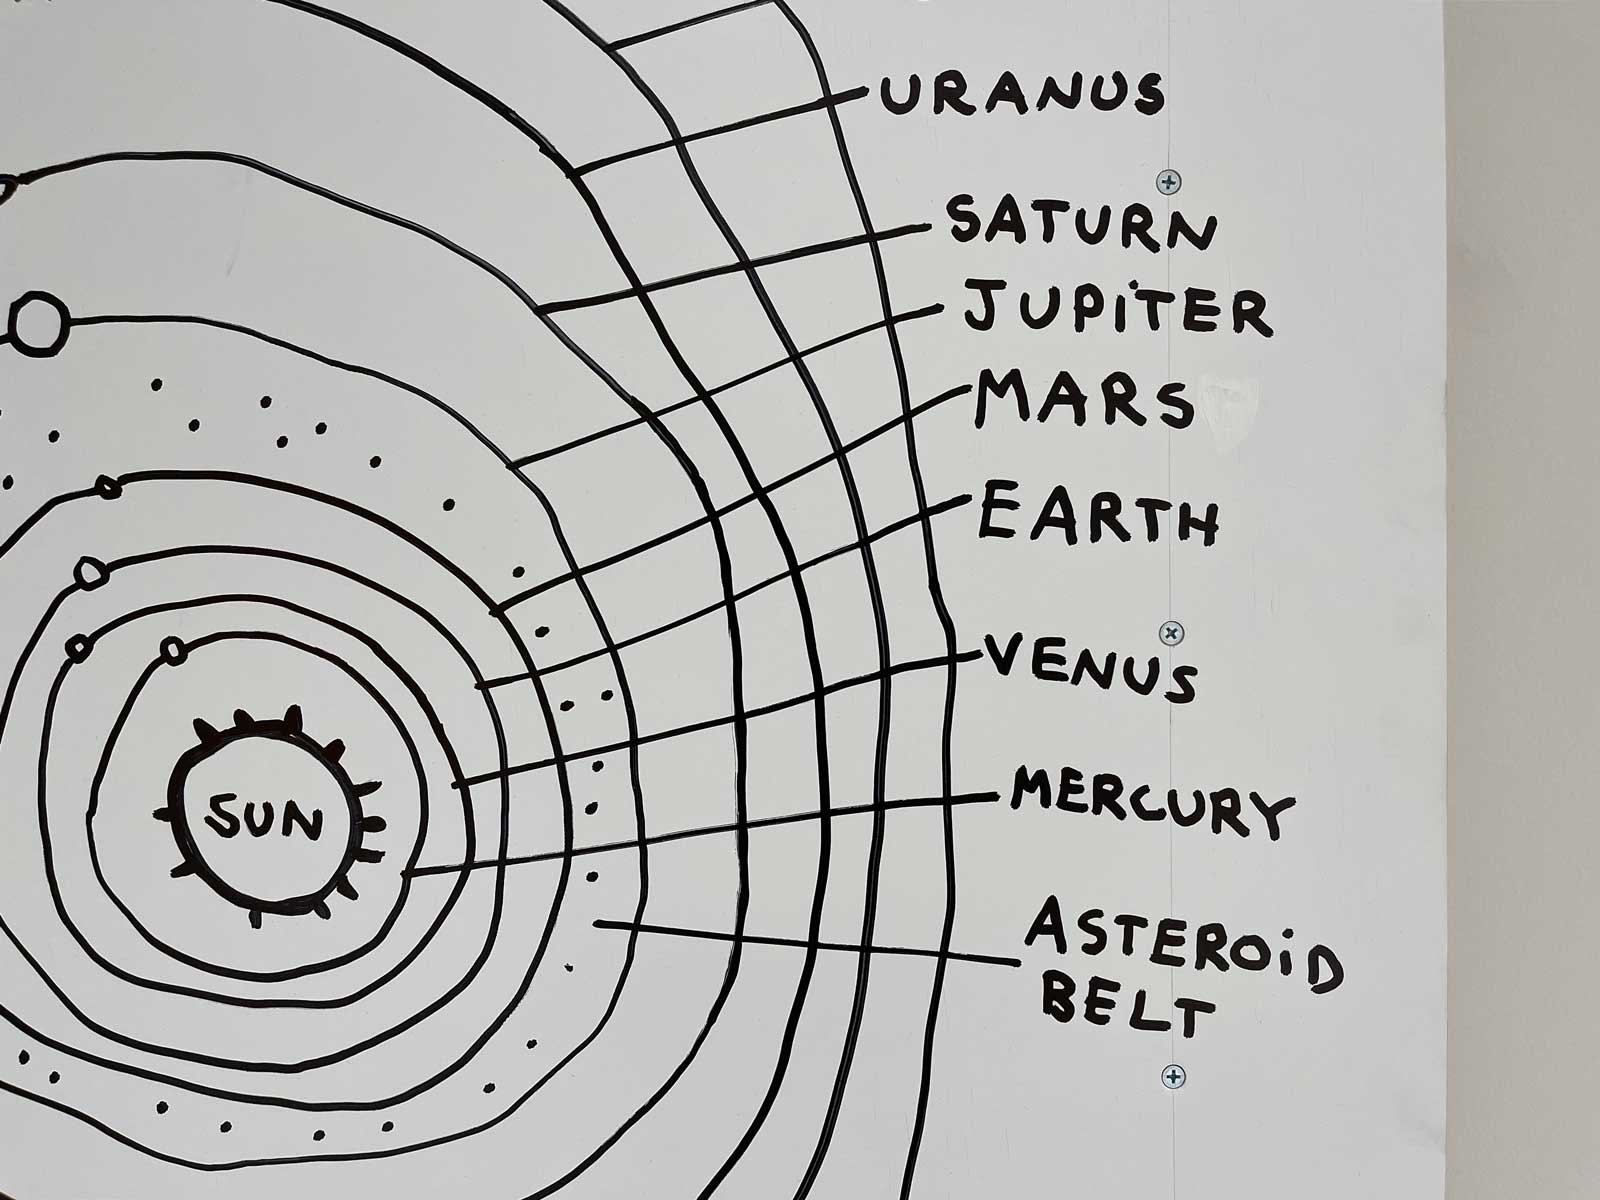 URANUS
SATURN
JUPiTER
MARS
EARTH
VENUS
MERCURY
SUN
ASTEROiD
BELT